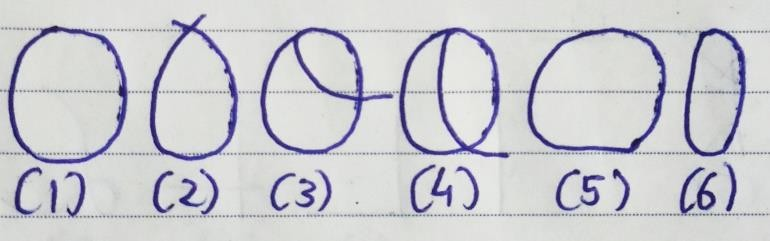 (1) (2) (3) (4) (5) (6)